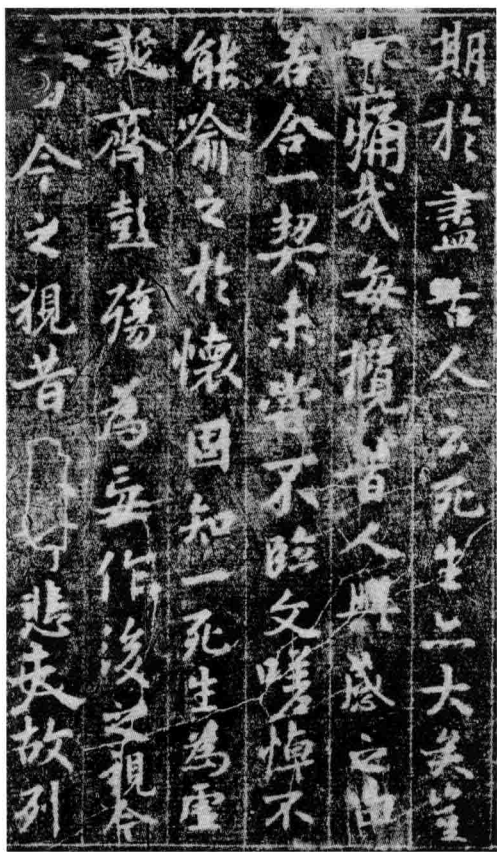 期於盡古人云死生亦大矣豈
不痛哉每攬昔人興感之由
若合一契未嘗不臨文嗟悼不
能喻之於懷固知一死生為虛
誕齊彭殤為妄作後之視今
今之視昔悲夫故列